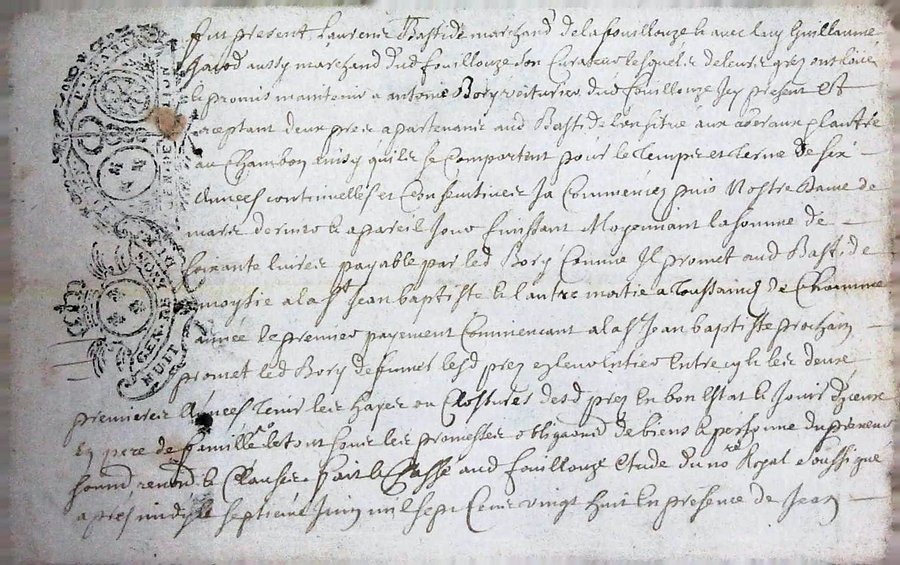 fut present Laurens Bastide marchand de la fouillouze & avec luy Guillaume
aussy marchand dud fouillouze son Curateur lesquels de leurs grez ont
& promis maintenir a antoine Bory voiturier dud fouillouze Icy present Et
aceptant deux prez apartenant aud Bastide l'un situé aux &
au Chambon ainsy quils se Comportent pour le Temps et Terme de six
Années continuelles et Consecutives Ja Commencez puis Nostre Dame de
mars dernier & a pareil Jour finissant Moyennant la somme de
soixante livres payable par led Bory Comme Il promet aud Bastide
moytie a la St Jean baptiste & l'autre moitie a Toussaind de Chacune
année le premier payement Commencant a la St Jean baptiste prochain
promet led Bory de fumer lesd prez Entre cy & les deux
premieres Années Tenir les hayes ou Clostures desd prez En bon Estat & Jouir
En pere de famille & tout sous les promesses obligaons de biens & personne du preneur
soumd renond & Clauses Fait & Passé aud fouillouze Etude du nore Royal Soussigné
apres midy le septieme Juin mil sept Cens vingt huit En presence de Jean
GEN
HUIT